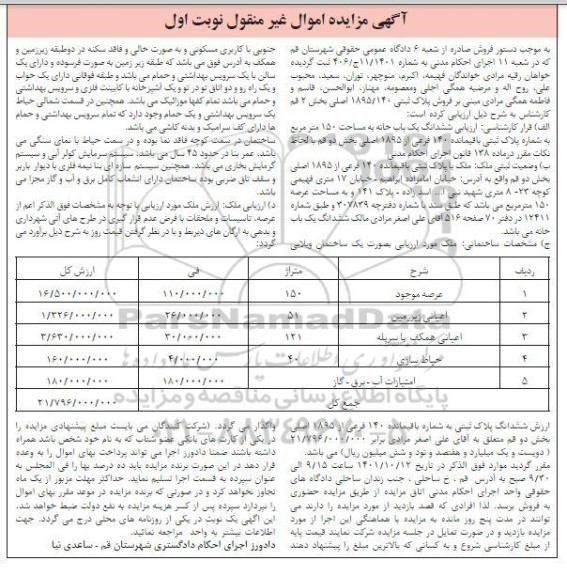 آگهی مزایده اموال غیر منقول نوبت اول
به موجب دستور فروش صادره از شعبه ۶ دادگاه عمومی حقوقی شهرستان قم
که در شعبه ۱۱ اجرای احکام مدنی به شماره ۱۱/۱۴۰۱ج/۴۰۶ ثبت گردیده
خواهان رقیه مرادی خواندگان فهیمه، اکبرم، منوچهر، توران، سعید، محبوب
علی، روح اله و مرضیه همگی اجلی ومعصومه، مهناز، ابوالحسن، قاسم و
فاطمه همگی مرادی مبنی بر فروش پلاک ثبتی ۱۸۹۵/۱۴۰ اصلی بخش ۲ قم
کارشناس به شرح ذیل ارزیابی کرده است:
الف) قرار کارشناسی: ارزیابی ششدانگ یک باب خانه به مساحت ۱۵۰ متر مربع
به شماره پلاک ثبتی باقیمانده ۱۴۰ فرعی از ۱۸۹۵ اصلی بخش دو قم با لحاظ
نکات مقرر درماده ۱۳۸ قانون اجرای احکام مدنی
ب) وضعیت ثبتی ملک: ملک با پلاک ثبتی باقیمانده ۱۴۰ فرعی از ۱۸۹۵ اصلی
بخش دو قم واقع به آدرس: خیابان امامزاده ابراهیم - خیابان ۱۷ متری فهیمی
کوچه ۲۳- ۸ متری شهید اسد زاده - پلاک ۱۴۱ و به مساحت عرصه
۱۵۰ مترمربع می باشد که طبق سند با شماره دفترچه ۳۰۷۸۳۹ و طبق شماره
۱۲۴۱۱ در دفتر ۷۰ صفحه ۵۱۶ آقای علی اصغر مرادی مالک ششدانگ یک باب
خانه می باشد.
ج) مشخصات ساختمانی: ملک مورد ارزیابی بصورت یک ساختمان ویلایی
جنوبی با کاربری مسکونی و به صورت خالی و فاقد سکنه در دوطبقه زیرزمین و
همکف به آدرس فوق می باشد که طبقه زیر زمین به صورت فرسوده و دارای یک
سالن با یک سرویس بهداشتی و حمام می باشد و طبقه فوقانی دارای یک خواب
و یک راه رو و دو اتاق تو در تو و یک آشپزخانه با کابینت فلزی و سرویس بهداشتی
و حمام می باشد تمام کفها موزائیک می باشد. همچنین در قسمت شمالی حیاط
یک سرویس بهداشتی و یک حمام وجود دارد که تمام سرویس بهداشتی و حمام
ها دارای کف سرامیک و بدنه کاشی می باشد.
ساختمان در سمت کوچه فاقد نما بوده و در سمت حیاط با نمای سنگی می
باشد. عمر بنا در حدود ۴۵ سال می باشد. سیستم سرمایش کولر آبی و سیستم
گرمایش بخاری می باشد. همچنین سیستم سازه ای بنا نیمه فلزی با دیوار باربر
و سقف تاق ضربی بوده ساختمان دارای انشعاب کامل برق و آب و گاز مجزا می
باشد.
د) ارزیابی ملک: ارزش ملک مورد ارزیابی با توجه به مشخصات فوق الذکر اعم از
عرصه، تاسیسات و ملحقات با فرض عدم قرار گیری در طرح های آتی شهرداری
و بدهی به ارگان های ذیربط و با در نظر گرفتن قیمت روز به شرح ذیل برآورد می
گردد:
ردیف شرح متراژ فی ارزش کل
۱ عرصه موجود ۱۵۰ ۱۱۰/۰۰۰/۰۰۰ ۱۶/۵۰۰/۰۰۰/۰۰۰
۲ اعیانی زیرزمین ۵۱ ۲۶/۰۰۰/۰۰۰ ۱/۳۲۶/۰۰۰/۰۰۰
۳ اعیانی همکف با سرپله ۱۲۱ ۳۰/۰۰۰/۰۰۰ ۳/۶۳۰/۰۰۰/۰۰۰
۴ حیاط سازی ۴۰ ۴/۰۰۰/۰۰۰ ۱۶۰/۰۰۰/۰۰۰
۵ امتیازات آب - برق - گاز ۱۸۰/۰۰۰/۰۰۰ ۱۸۰/۰۰۰/۰۰۰
جمع کل ۲۱/۷۹۶/۰۰۰/۰۰۰
ParsNamadData
پایگاه اطلاع رسانی مناقصه و مزایده
ارزش ششدانگ پلاک ثبتی به شماره باقیمانده ۱۴۰ فرعی از ۱۸۹۵ اصلی
بخش دو قم متعلق به آقای علی اصغر مرادی برابر ۲۱/۷۹۶/۰۰۰/۰۰۰
( دویست و یک میلیارد و هفتصد و نود و شش میلیون ریال) می باشد.
مقرر گردید موارد فوق الذکر در تاریخ ۱۴۰۱/۱۰/۱۲ ساعت ۹/۱۵ الی
۹/۳۰ صبح به آدرس قم ، خ ساحلی ، جنب زندان ساحلی دادگاه های
حقوقی واحد اجرای احکام مدنی اتاق مزایده از طریق مزایده حضوری
به فروش برسد. لذا افرادی که قصد بازدید از مورد مزایده را دارند می
توانند در مدت پنج روز مانده به مزایده با هماهنگی این اجرا از مورد
مزایده بازدید و در صورت تمایل در جلسه مزایده شرکت نمایند قیمت پایه
از مبلغ کارشناسی شروع و به کسانی که بالاترین مبلغ را پیشنهاد دهند
واگذار می گردد. (شرکت کنندگان می بایست مبلغ پیشنهادی مزایده را
در یکی از کارت های بانکی عضو شتاب که به نام خود شخص باشد همراه
داشته باشند ضمنا دادورز اجرا می تواند پرداخت بهای اموال را به وعده
قرار دهد در این صورت برنده مزایده باید ده درصد بها را فی المجلس به
عنوان سپرده به قسمت اجرا تسلیم نماید. حداکثر مهلت مزبور از یک ماه
تجاوز نخواهد کرد و در صورتی که برنده مزایده در موعد مقرر بهای اموال
را نپردازد سپرده پس از کسر هزینه مزایده به نفع دولت ضبط خواهد شد.
این آگهی یک نوبت در یکی از روزنامه های محلی درج می گردد. جهت
اطلاعات بیشتر به واحد مراجعه نمائید.
دادورز اجرای احکام دادگستری شهرستان قم - ساعدی نیا